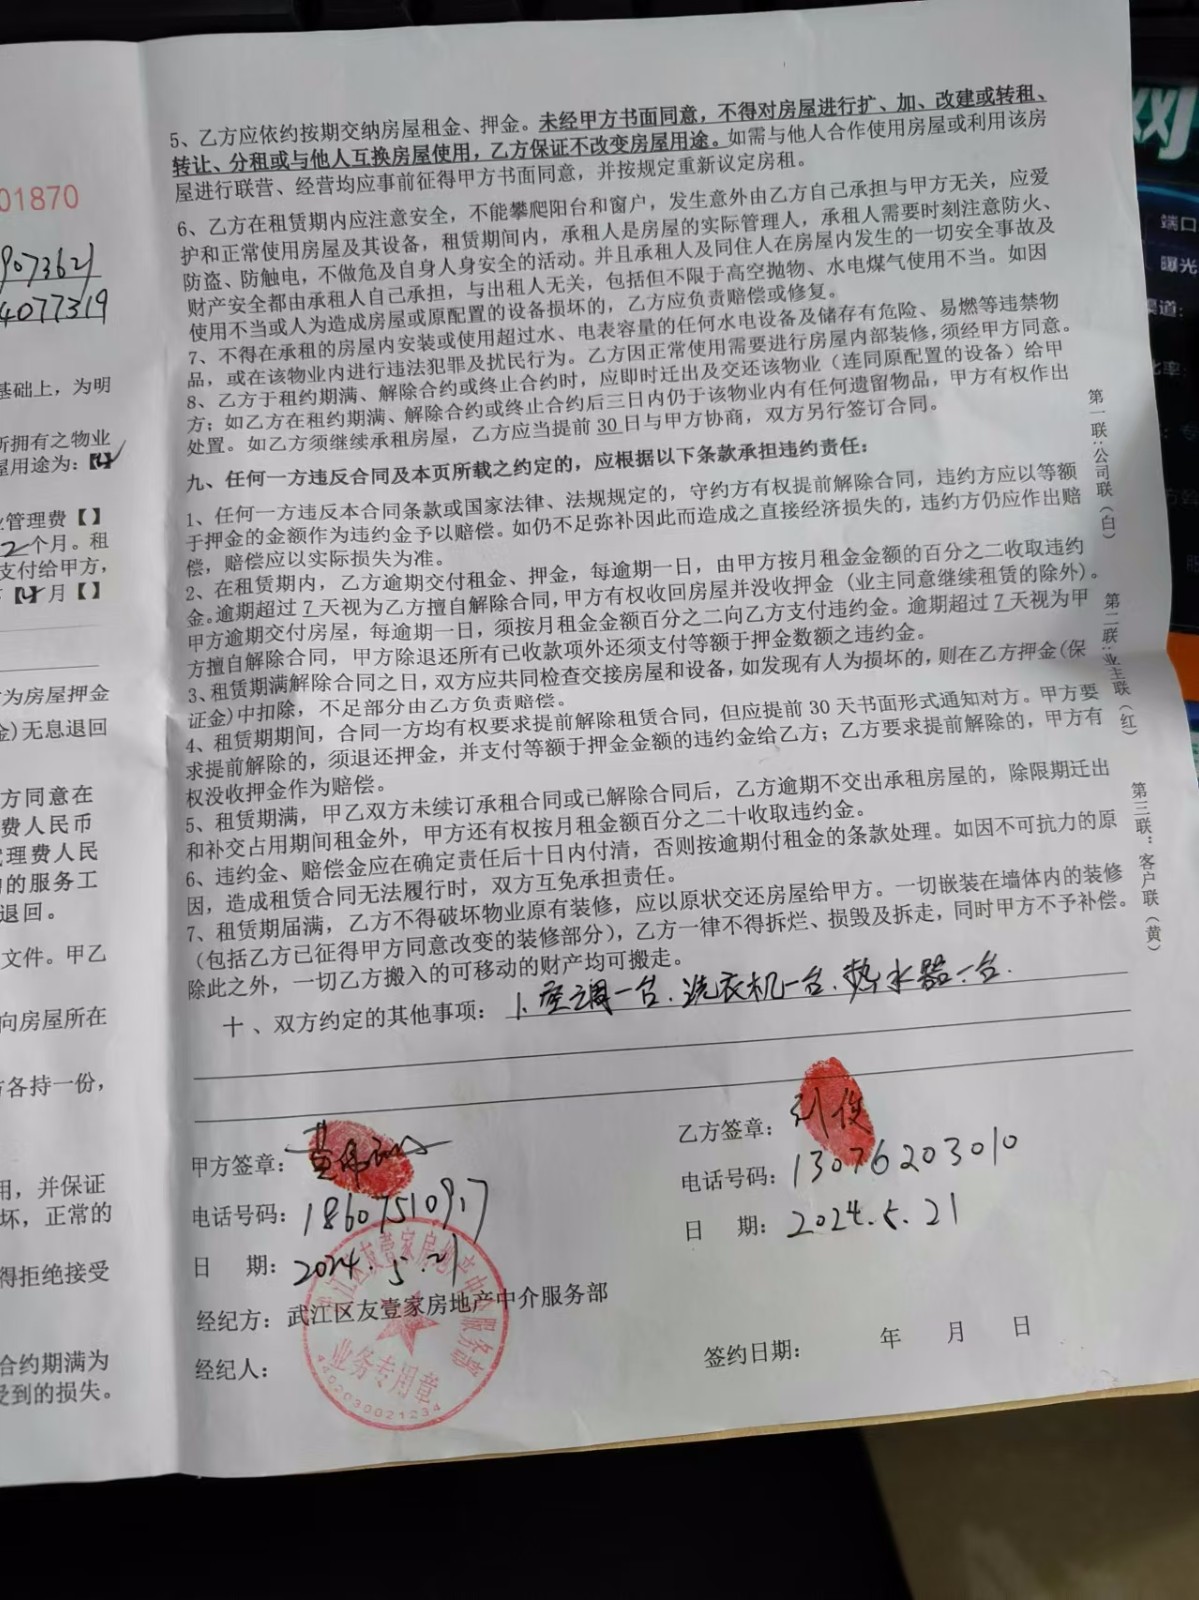 01870
9073621
4077319
基础上，为明
所拥有之物业
屋用途为：【✓】
管理费【】
2个月。租
支付给甲方，
月【】
为房屋押金
金)无息退回
方同意在
费人民币
代理费人民
的服务工
退回。
文件。甲乙
向房屋所在
方各持一份，
用，并保证
坏，正常的
得拒绝接受
合约期满为
受到的损失。
5、乙方应依约按期交纳房屋租金、押金。未经甲方书面同意，不得对房屋进行扩、加、改建或转租、
转让、分租或与他人互换房屋使用，乙方保证不改变房屋用途。如需与他人合作使用房屋或利用该房
屋进行联营、经营均应事前征得甲方书面同意，并按规定重新议定房租。
6、乙方在租赁期内应注意安全，不能攀爬阳台和窗户，发生意外由乙方自己承担与甲方无关，应爱
护和正常使用房屋及其设备，租赁期间内，承租人是房屋的实际管理人，承租人需要时刻注意防火、
防盗、防触电，不做危及自身人身安全的活动。并且承租人及同住人在房屋内发生的一切安全事故及
财产安全都由承租人自己承担，与出租人无关，包括但不限于高空抛物、水电煤气使用不当。如因
使用不当或人为造成房屋或原配置的设备损坏的，乙方应负责赔偿或修复。
7、不得在承租的房屋内安装或使用超过水、电表容量的任何水电设备及储存有危险、易燃等违禁物
品，或在该物业内进行违法犯罪及扰民行为。乙方因正常使用需要进行房屋内部装修，须经甲方同意。
8、乙方于租约期满、解除合约或终止合约时，应即时迁出及交还该物业（连同原配置的设备）给甲
方；如乙方在租约期满、解除合约或终止合约后三日内仍于该物业内有任何遗留物品，甲方有权作出
处置。如乙方须继续承租房屋，乙方应当提前30日与甲方协商，双方另行签订合同。
九、任何一方违反合同及本页所载之约定的，应根据以下条款承担违约责任：
1、任何一方违反本合同条款或国家法律、法规规定的，守约方有权提前解除合同，违约方应以等额
于押金的金额作为违约金予以赔偿。如仍不足弥补因此而造成之直接经济损失的，违约方仍应作出赔
偿，赔偿应以实际损失为准。
2、在租赁期内，乙方逾期交付租金、押金，每逾期一日，由甲方按月租金金额的百分之二收取违约
金。逾期超过7天视为乙方擅自解除合同，甲方有权收回房屋并没收押金（业主同意继续租赁的除外）。
甲方逾期交付房屋，每逾期一日，须按月租金金额百分之二向乙方支付违约金。逾期超过7天视为甲
方擅自解除合同，甲方除退还所有已收款项外还须支付等额于押金数额之违约金。
3、租赁期满解除合同之日，双方应共同检查交接房屋和设备，如发现有人为损坏的，则在乙方押金(保
证金)中扣除，不足部分由乙方负责赔偿。
4、租赁期期间，合同一方均有权要求提前解除租赁合同，但应提前30天书面形式通知对方。甲方要
求提前解除的，须退还押金，并支付等额于押金金额的违约金给乙方；乙方要求提前解除的，甲方有
权没收押金作为赔偿。
5、租赁期满，甲乙双方未续订承租合同或已解除合同后，乙方逾期不交出承租房屋的，除限期迁出
和补交占用期间租金外，甲方还有权按月租金额百分之二十收取违约金。
6、违约金、赔偿金应在确定责任后十日内付清，否则按逾期付租金的条款处理。如因不可抗力的原
因，造成租赁合同无法履行时，双方互免承担责任。
7、租赁期届满，乙方不得破坏物业原有装修，应以原状交还房屋给甲方。一切嵌装在墙体内的装修
（包括乙方已征得甲方同意改变的装修部分），乙方一律不得拆烂、损毁及拆走，同时甲方不予补偿。
除此之外，一切乙方搬入的可移动的财产均可搬走。
十、双方约定的其他事项：1、空调一台、洗衣机一台、热水器一台.
甲方签章：
电话号码：18607510917
日 期：2024.5.21
经纪方：武江区友壹家房地产中介服务部
经纪人：
武江区友壹家房地产中介服务部
业务专用章
4402030021234
乙方签章：刘俊
电话号码：13076203010
日 期：2024.5.21
签约日期： 年 月 日
第一联：公司联（白）
第二联：业主联（红）
第三联：客户联（黄）
网
端口
曝光
渠道：
比率：